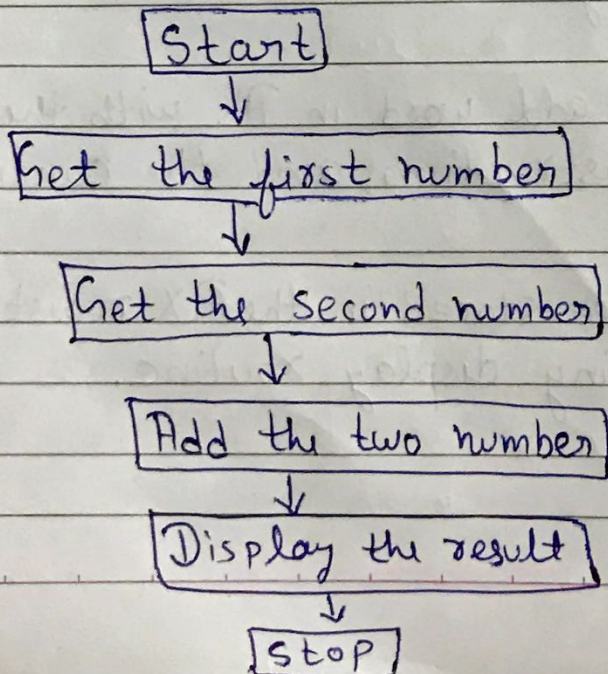 Start
Get the first number
Get the second number
Add the two number
Display the result
Stop